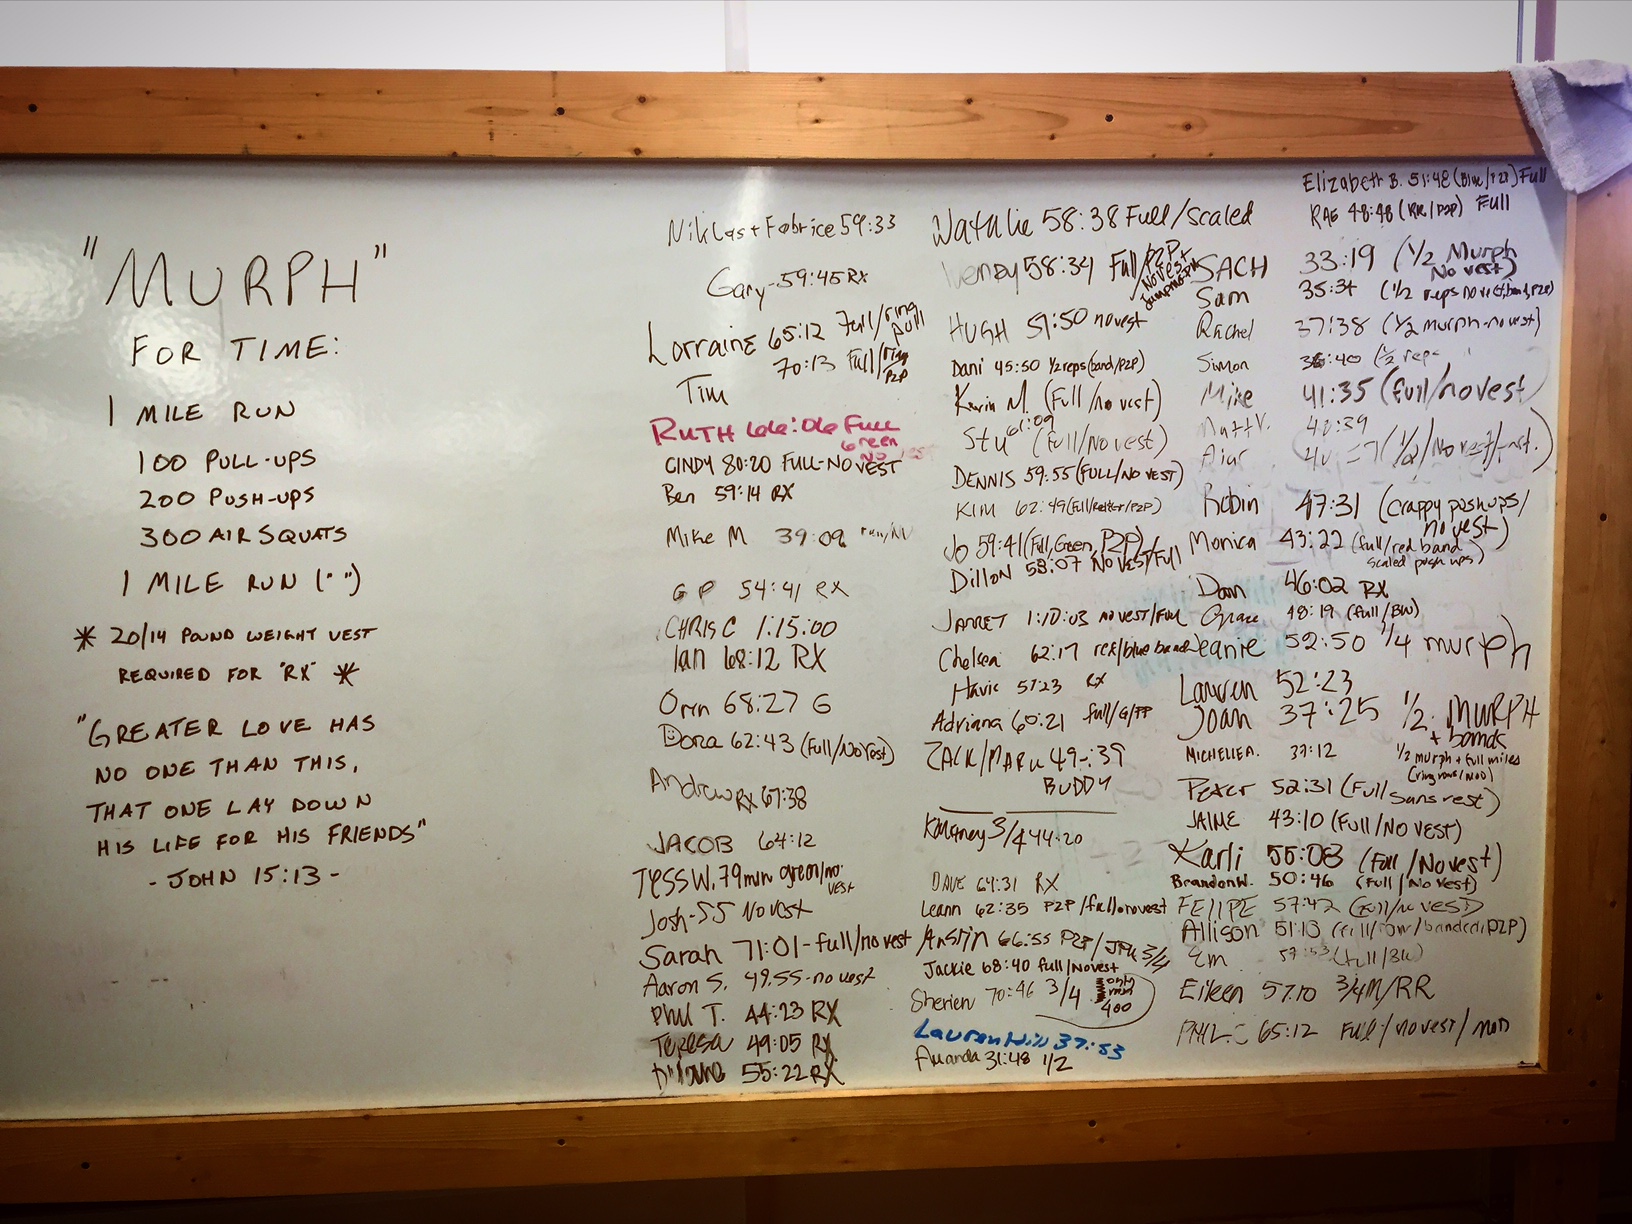 "MURPH"
FOR TIME:
1 MILE RUN
100 PULL-UPS
200 PUSH-UPS
300 AIR SQUATS
1 MILE RUN (" ")
* 20/14 POUND WEIGHT VEST
REQUIRED FOR "RX" *
"GREATER LOVE HAS
NO ONE THAN THIS,
THAT ONE LAY DOWN
HIS LIFE FOR HIS FRIENDS"
- JOHN 15:13 -
Niklas + Fabrice 59:33
Gary - 59:45 RX
Lorraine 65:12 Full/ring pull
70:13 Full/ring P2P
Tim
RUTH 66:06 Full
Green
No
CINDY 80:20 FULL-NO VEST
Ben 59:14 RX
Mike M 39:09 run/NV
GP 54:41 RX
CHRIS C 1:15:00
Ian 68:12 RX
Orin 68:27 G
Dora 62:43 (Full/No Vest)
Andrew RX 67:38
JACOB 64:12
Jess W. 79min green/no vest
Josh - 55 No Vest
Sarah 71:01 - full/no vest
Aaron S. 49:55 - no vest
Phil T. 44:23 RX
Teresa 49:05 RX
55:22 RX
Natalie 58:38 Full/Scaled
58:34 Full/P2P
/No Vest
HUGH 59:50 no vest
Dani 45:50 1/2 reps (band/P2P)
Kevin M. (Full/no vest)
Stu 61:09 (full/No vest)
DENNIS 59:55 (FULL/NO VEST)
KIM 62:49 (Full/ /P2P)
Jo 59:41 (Full, Green, P2P)
Dillon 58:07 No Vest/Full
JARRET 1:10:03 no vest/Full
Chelsea 62:17 red/blue band
Havic 57:23 RX
Adriana 60:21 full/G/PP
ZACK/MARU 49:39
BUDDY
Kourtney 3/4 44:20
DAVE 64:31 RX
Leann 62:35 P2P/full.novest
Austin 66:55 P2P/JPU 3/4
Jackie 68:40 full/No vest
Sherien 70:46 3/4 only
run
400
Lauren Hill 37:53
Amanda 31:48 1/2
Elizabeth B. 51:48 (Blue/P2P) Full
RAE 48:48 (RR/P2P) Full
SACH 33:19 (1/2 Murph
No vest)
Sam 35:34 (1/2 reps no vest, band, P2P)
Rachel 37:38 (1/2 murph-no vest)
Simon 36:40 (1/2 reps
Mike 41:35 (full/no vest)
Matt V. 40:39
(1/2/No vest/
Robin 47:31 (crappy pushups/
no vest)
Monica 43:22 (full/red band
scaled push ups)
Dan 46:02 RX
Grace 48:19 (full/BW)
Jeanie 52:50 1/4 murph
Lauren 52:23
Joan 37:25 1/2 MURPH
+ bands
MICHELLE A. 37:12 1/2 murph + full miles
(ring rows/mod)
Peter 52:31 (Full
Sans vest)
JAIME 43:10 (Full/NO VEST)
Karli 55:08 (Full/No vest)
Brandon W. 50:46 (Full/No Vest)
FELIPE 57:42 (full/no vest)
Allison 51:13 (full/row/banded/P2P)
Em 57:53 (full/BW)
Eileen 57:10 3/4 M/RR
PHIL C 65:12 Full/no vest/mod